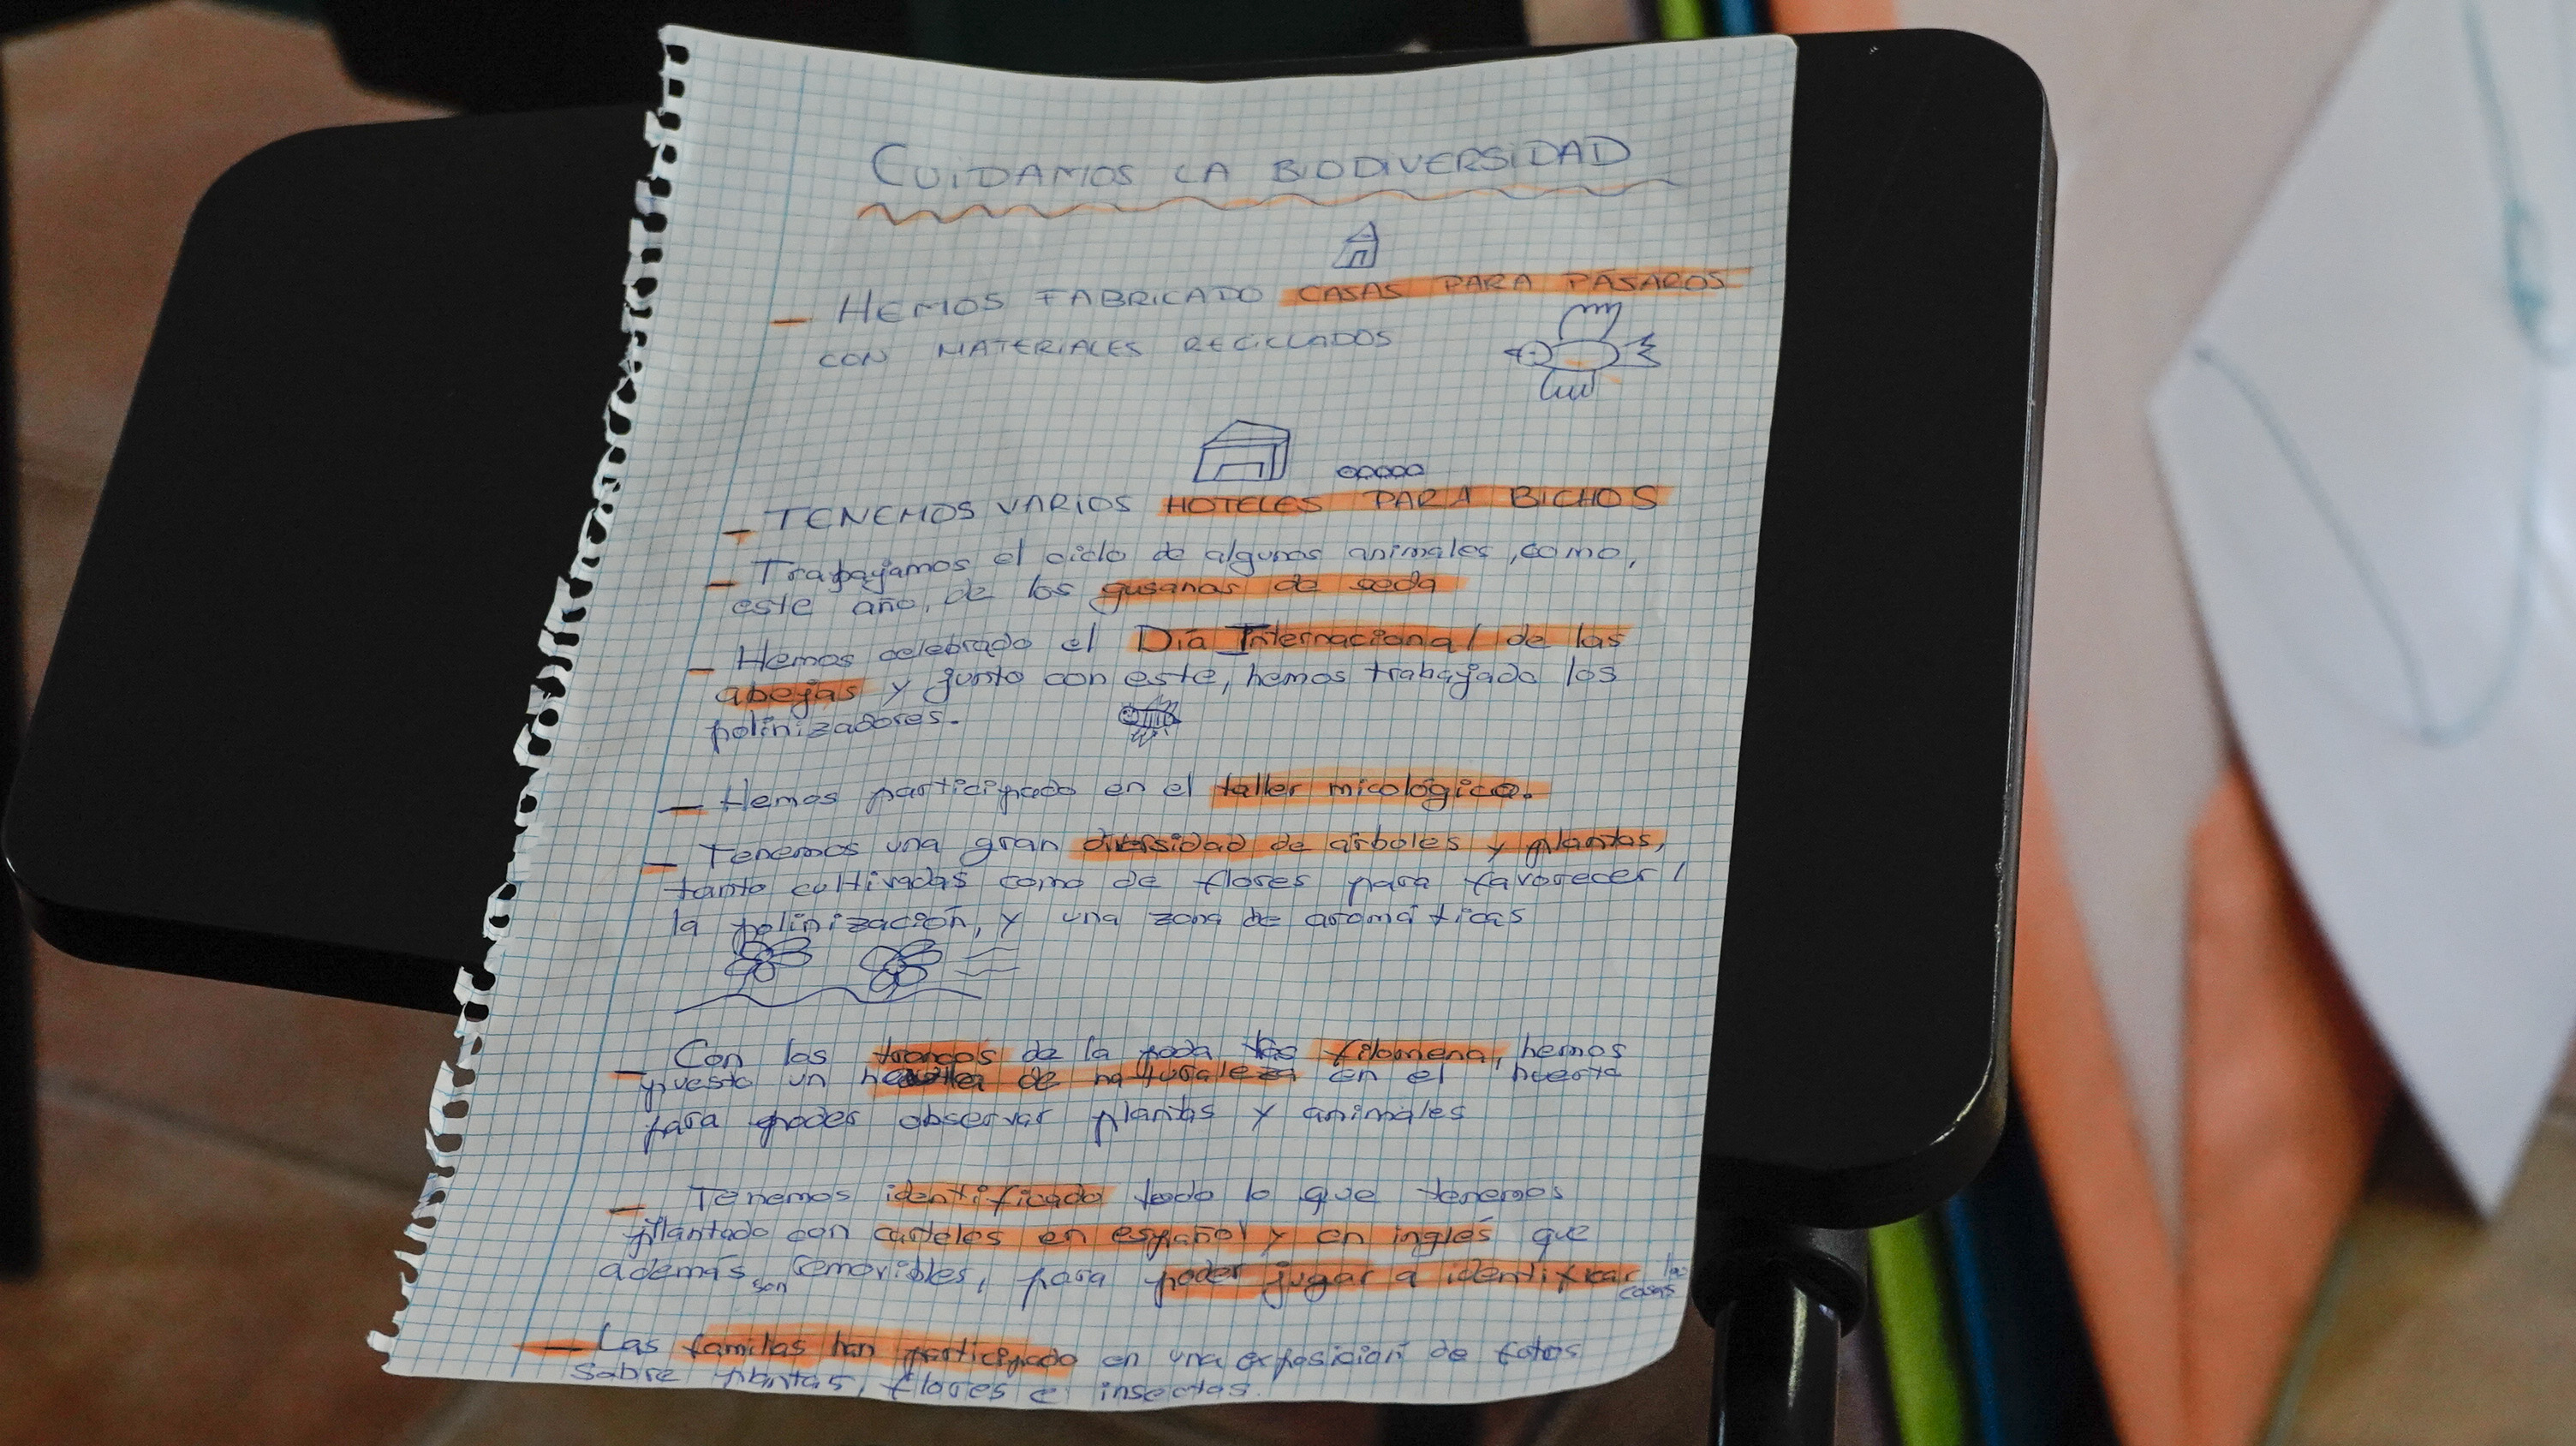 CUIDAMOS LA BIODIVERSIDAD
- HEMOS FABRICADO CASAS PARA PÁSAROS
CON MATERIALES RECICLADOS
- TENEMOS VARIOS HOTELES PARA BICHOS
- Trabajamos el ciclo de algunos animales, como,
este año, de los gusanos de seda
- Hemos celebrado el Día Internacional de las
abejas y junto con este, hemos trabajado los
polinizadores.
- Hemos participado en el taller micológico.
- Tenemos una gran diversidad de árboles y plantas,
tanto cultivadas como de flores para favorecer
la polinización, y una zona de aromáticas
- Con los troncos de la poda filomena, hemos
puesto un de naturaleza en el huerto
para poder observar plantas y animales
- Tenemos identificado todo lo que tenemos
plantado con carteles en español y en inglés que
además son removibles, para poder jugar a identificar las
cosas
- Las familias han participado en una exposición de fotos
sobre plantas, flores e insectos.